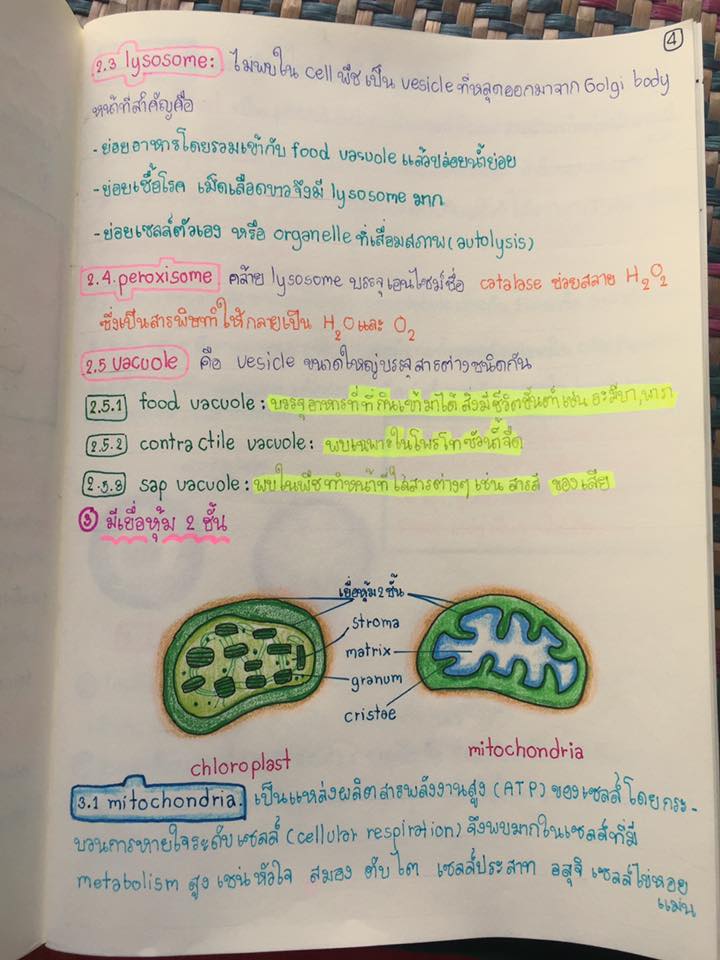 4
2.3 lysosome: ไม่พบใน cell พืช เป็น vesicle ที่หลุดออกมาจาก Golgi body
หน้าที่สำคัญคือ
-ย่อยอาหารโดยรวมเข้ากับ food vacuole แล้วปล่อยน้ำย่อย
-ย่อยเชื้อโรค เม็ดเลือดขาวจึงมี lysosome มาก
-ย่อยเซลล์ตัวเอง หรือ organelle ที่เสื่อมสภาพ (autolysis)
2.4.peroxisome คล้าย lysosome บรรจุเอนไซม์ชื่อ catalase ช่วยสลาย H2O2
ซึ่งเป็นสารพิษทำให้กลายเป็น H2O และ O2
2.5 vacuole คือ vesicle ขนาดใหญ่บรรจุสารต่างชนิดกัน
2.5.1 food vacuole: บรรจุอาหารที่ที่กินเข้ามาได้ สิ่งมีชีวิตชั้นต่ำเช่น อะมีบา,
2.5.2 contractile vacuole: พบเฉพาะในโพรโทซัวน้ำจืด
2.5.3 sap vacuole: พบในพืช ทำหน้าที่ใส่สารต่างๆ เช่น สารสี ของเสีย
③ มีเยื่อหุ้ม 2 ชั้น
เยื่อหุ้ม 2 ชั้น
stroma
matrix
granum
cristae
chloroplast
mitochondria
3.1 mitochondria. เป็นแหล่งผลิตสารพลังงานสูง (ATP) ของเซลล์ โดยกระ-
บวนการหายใจระดับเซลล์ (cellular respiration) จึงพบมากในเซลล์ที่มี
metabolism สูง เช่น หัวใจ สมอง ตับ ไต เซลล์ประสาท อสุจิ เซลล์ไข่หอย
แมน